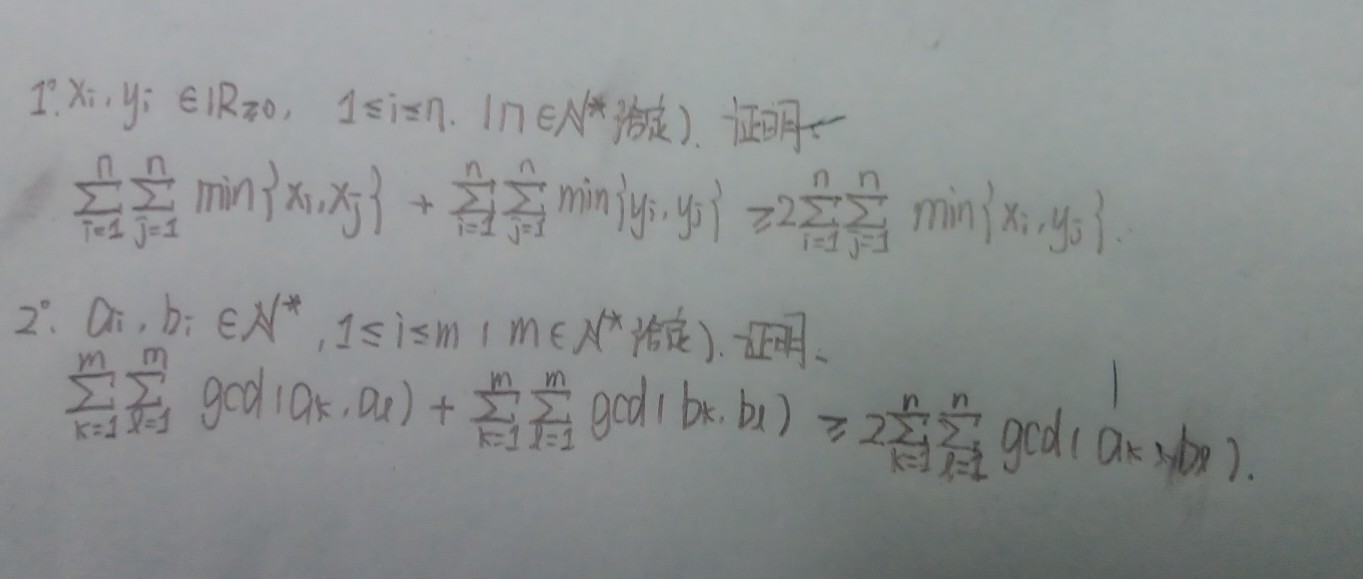 1°. xᵢ, yᵢ ∈ ℝ≥0, 1≤i≤n. (n∈N*给定). 证明.
∑_{i=1}^{n} ∑_{j=1}^{n} min{xᵢ, xⱼ} + ∑_{i=1}^{n} ∑_{j=1}^{n} min{yᵢ, yⱼ} ≥ 2∑_{i=1}^{n} ∑_{j=1}^{n} min{xᵢ, yⱼ}.
2°. aᵢ, bᵢ ∈ N*, 1≤i≤m (m∈N*给定). 证明.
∑_{k=1}^{m} ∑_{l=1}^{m} gcd(aₖ, aₗ) + ∑_{k=1}^{m} ∑_{l=1}^{m} gcd(bₖ, bₗ) ≥ 2∑_{k=1}^{n} ∑_{l=1}^{n} gcd(aₖ, bₗ).